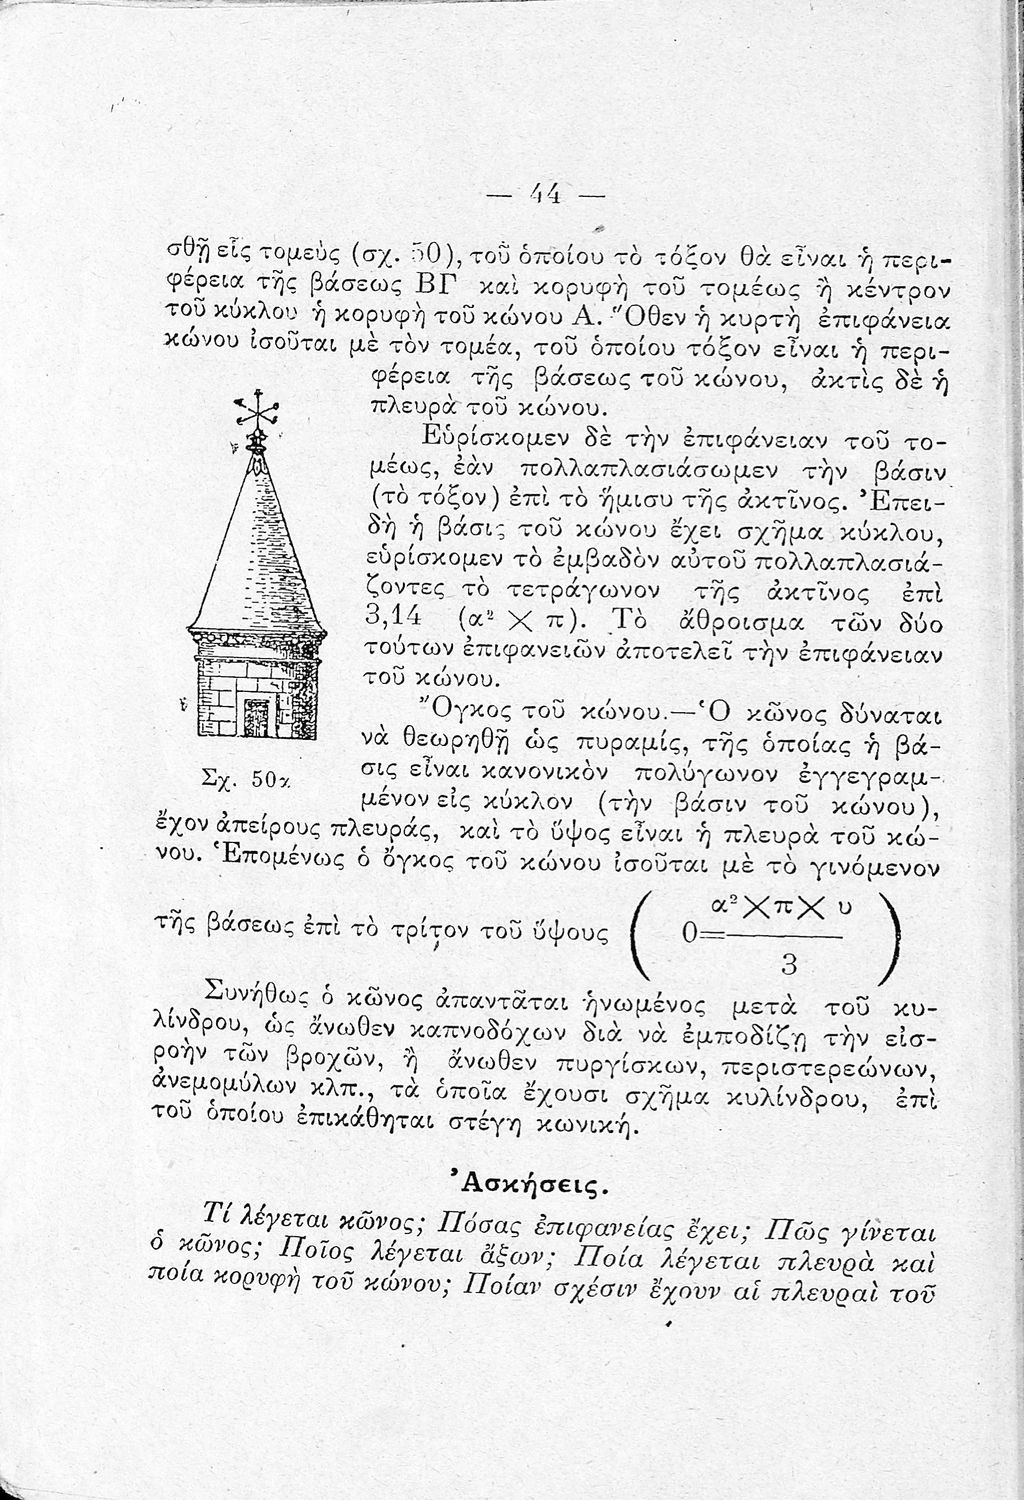 — 44 —
σθῇ εἰς τομεὺς (σχ. 50), τοῦ ὁποίου τὸ τόξον θὰ εἶναι ἡ περι-
φέρεια τῆς βάσεως ΒΓ καὶ κορυφὴ τοῦ τομέως ἢ κέντρον
τοῦ κύκλου ἡ κορυφὴ τοῦ κώνου Α. Ὅθεν ἡ κυρτὴ ἐπιφάνεια
κώνου ἰσοῦται μὲ τὸν τομέα, τοῦ ὁποίου τόξον εἶναι ἡ περι-
φέρεια τῆς βάσεως τοῦ κώνου, ἀκτὶς δὲ ἡ
πλευρὰ τοῦ κώνου.
Εὑρίσκομεν δὲ τὴν ἐπιφάνειαν τοῦ το-
μέως, ἐὰν πολλαπλασιάσωμεν τὴν βάσιν
(τὸ τόξον) ἐπὶ τὸ ἥμισυ τῆς ἀκτῖνος. Ἐπει-
δὴ ἡ βάσις τοῦ κώνου ἔχει σχῆμα κύκλου,
εὑρίσκομεν τὸ ἐμβαδὸν αὐτοῦ πολλαπλασιά-
ζοντες τὸ τετράγωνον τῆς ἀκτῖνος ἐπὶ
3,14 (α² Χ π). Τὸ ἄθροισμα τῶν δύο
τούτων ἐπιφανειῶν ἀποτελεῖ τὴν ἐπιφάνειαν
τοῦ κώνου.
Ὄγκος τοῦ κώνου.—Ὁ κῶνος δύναται
νὰ θεωρηθῇ ὡς πυραμίς, τῆς ὁποίας ἡ βά-
σις εἶναι κανονικὸν πολύγωνον ἐγγεγραμ-
μένον εἰς κύκλον (τὴν βάσιν τοῦ κώνου),
Σχ. 50α
ἔχον ἀπείρους πλευράς, καὶ τὸ ὕψος εἶναι ἡ πλευρὰ τοῦ κώ-
νου. Ἑπομένως ὁ ὄγκος τοῦ κώνου ἰσοῦται μὲ τὸ γινόμενον
τῆς βάσεως ἐπὶ τὸ τρίτον τοῦ ὕψους ( 0= α² Χ π Χ υ / 3 )
Συνήθως ὁ κῶνος ἀπαντᾶται ἡνωμένος μετὰ τοῦ κυ-
λίνδρου, ὡς ἄνωθεν καπνοδόχων διὰ νὰ ἐμποδίζῃ τὴν εἰσ-
ροὴν τῶν βροχῶν, ἢ ἄνωθεν πυργίσκων, περιστερεώνων,
ἀνεμομύλων κλπ., τὰ ὁποῖα ἔχουσι σχῆμα κυλίνδρου, ἐπὶ
τοῦ ὁποίου ἐπικάθηται στέγη κωνική.
Ἀσκήσεις.
Τί λέγεται κῶνος; Πόσας ἐπιφανείας ἔχει; Πῶς γίνεται
ὁ κῶνος; Ποῖος λέγεται ἄξων; Ποία λέγεται πλευρὰ καὶ
ποία κορυφὴ τοῦ κώνου; Ποίαν σχέσιν ἔχουν αἱ πλευραὶ τοῦ